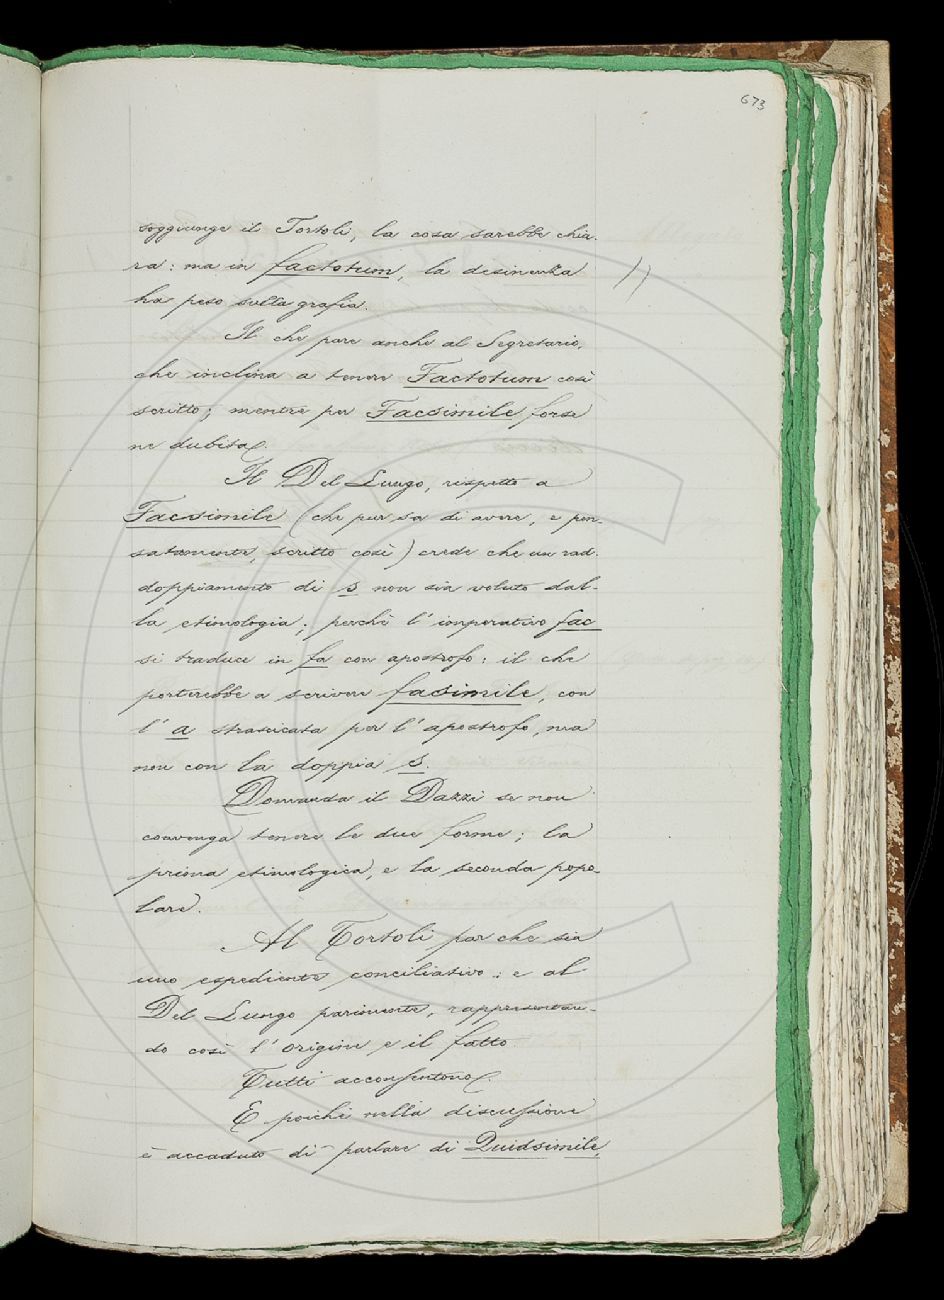 673
soggiunge il Tortoli, la cosa sarebbe chia-
ra: ma in factotum, la desinenza
ha peso sulla grafia.
Il che pare anche al Segretario,
che inclina a tenere Factotum così
scritto; mentre per Facsimile forse
ne dubita.
Il Del Lungo, rispetto a
Facsimile (che pur sa di avere, e pen-
satamente, scritto così) crede che un rad-
doppiamento di s non sia voluto dal-
la etimologia; perchè l'imperativo fac
si traduce in fa con apostrofo: il che
porterebbe a scrivere fasimile, con
l'a strascicata per l'apostrofo, ma
non con la doppia s.
Domanda il Dazzi se non
convenga tenere le due forme; la
prima etimologica, e la seconda popo-
lare.
Al Tortoli par che sia
uno espediente conciliativo: e al
Del Lungo parimente, rappresentan-
do così l'origine e il fatto
Tutti acconsentono.
E poichè nella discussione
è accaduto di parlare di Quidsimile,